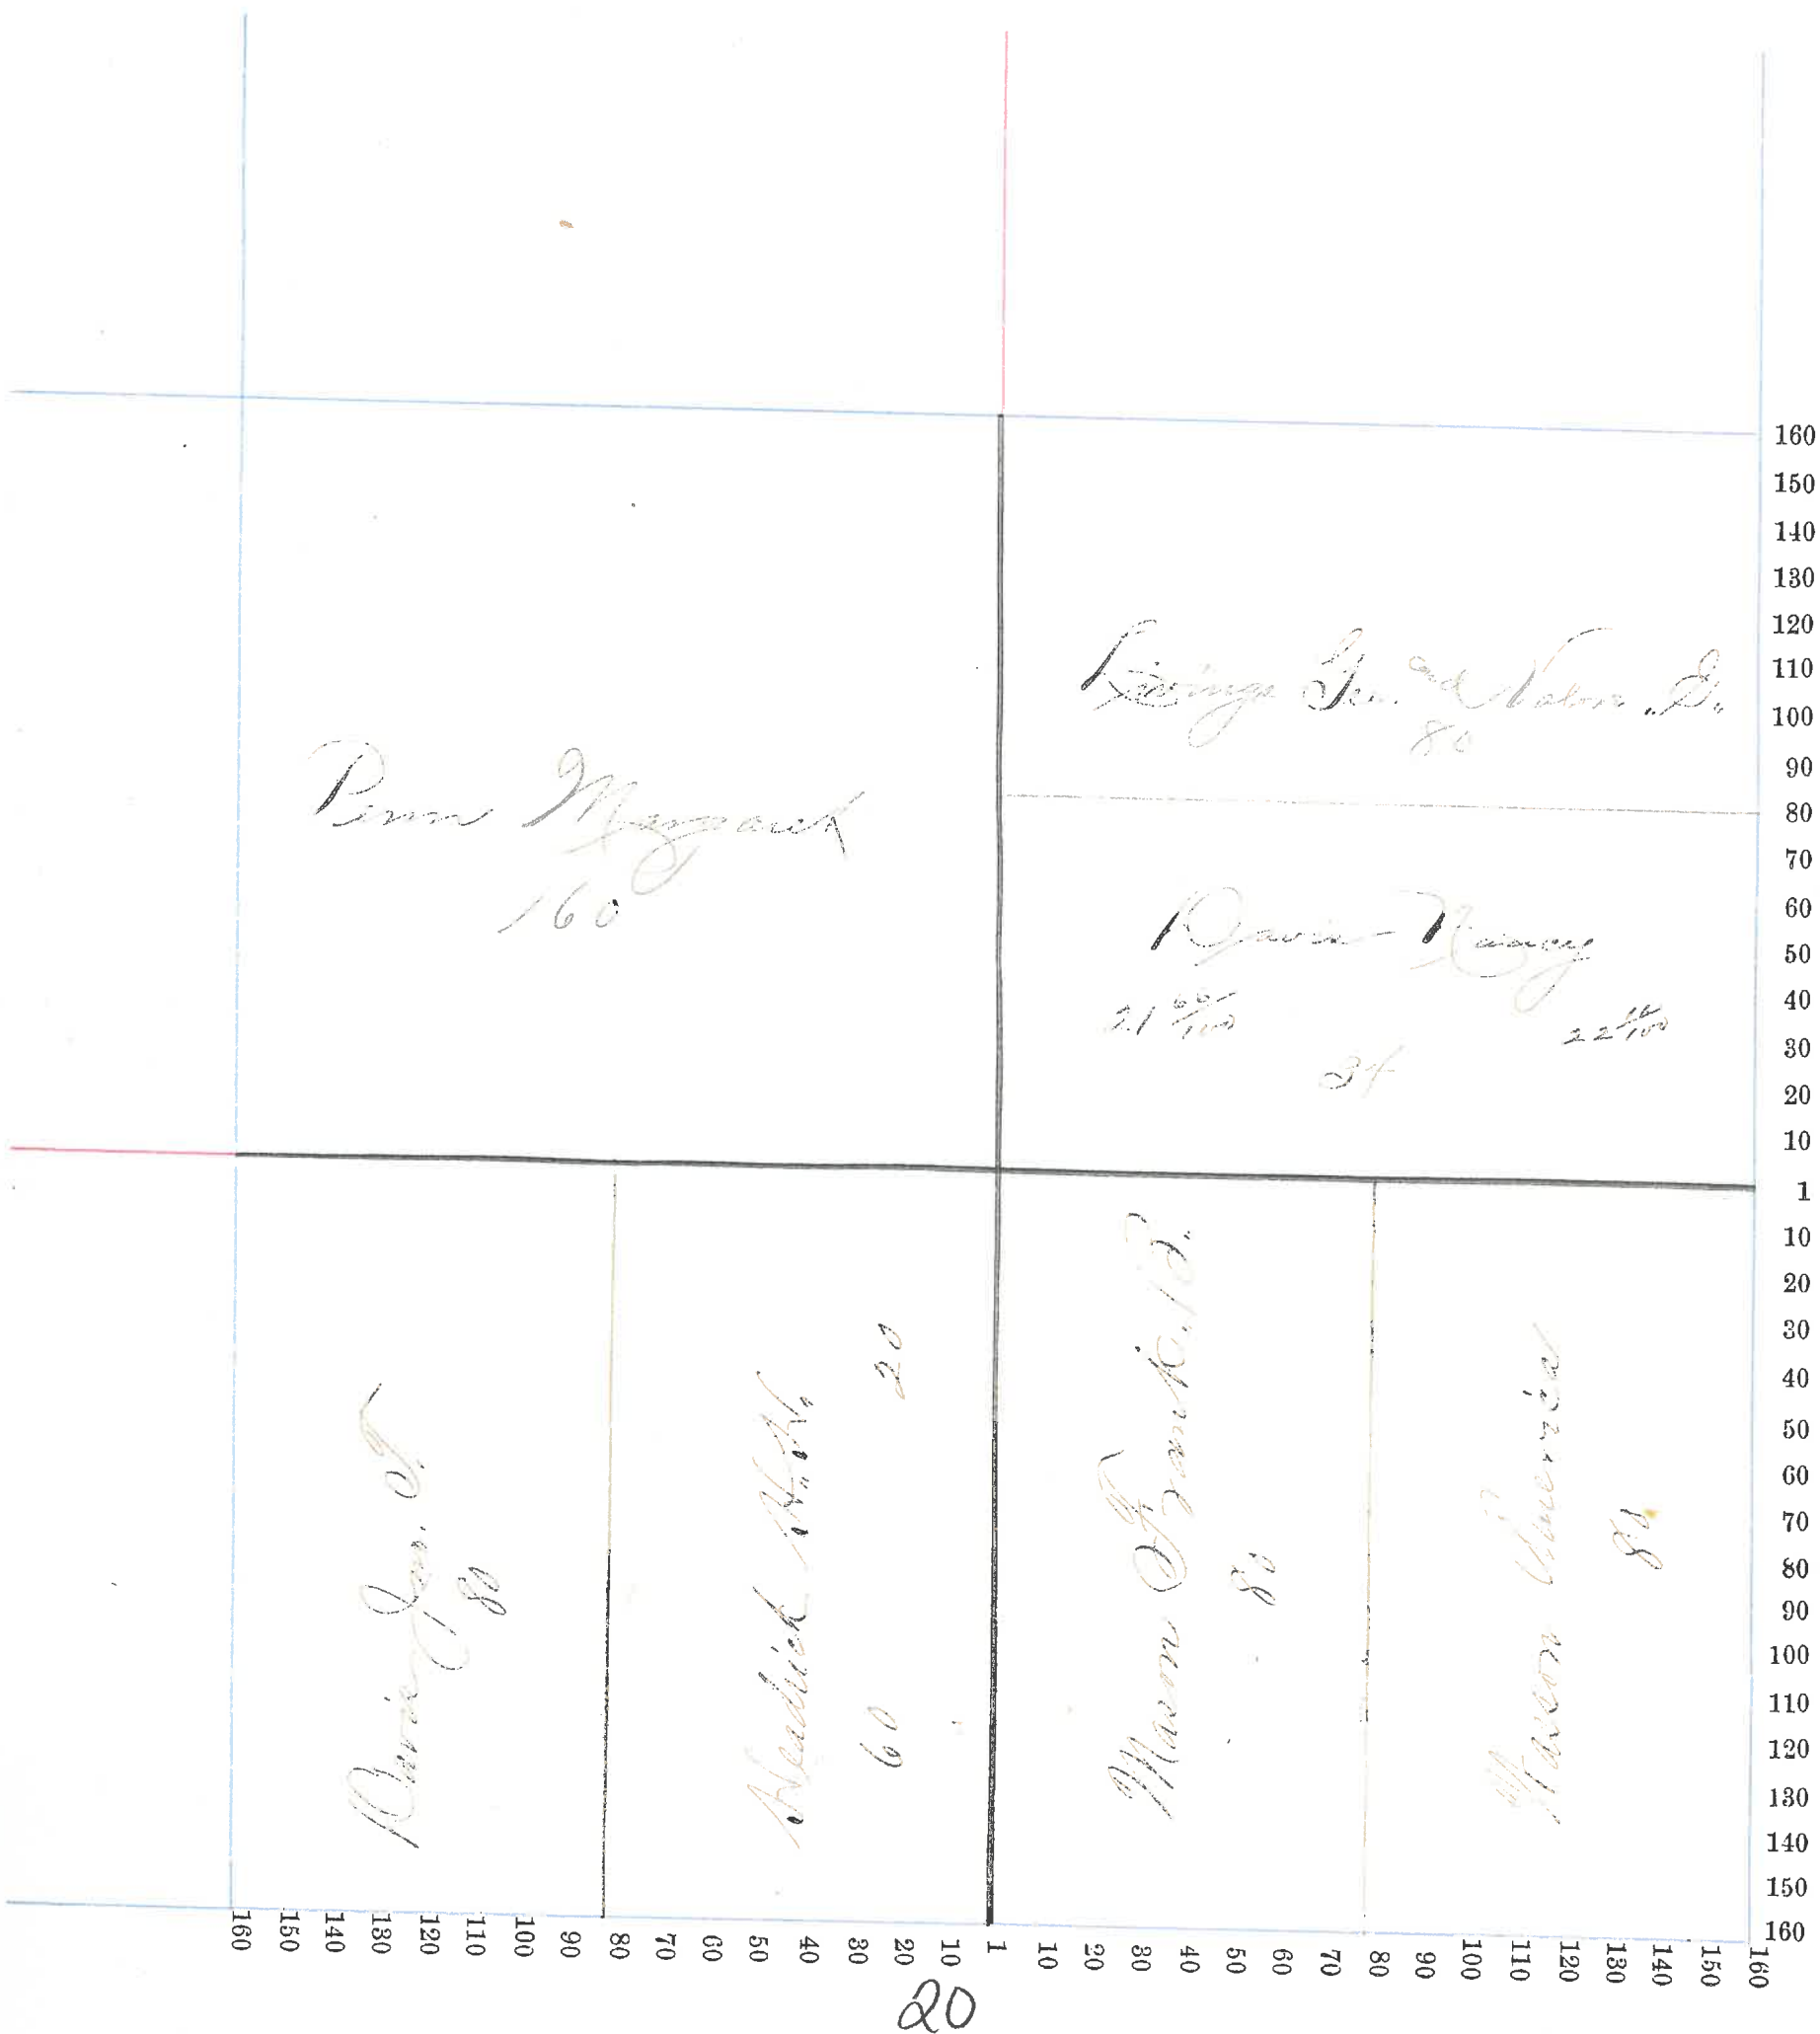 Penn Margaret
160
Livings Geo. and Nolon. D.
80
Davis Nancy
21 60/100
22 /100
34
Davis Jas. T.
80
Headrick H. H.
60
20
Mason Frank. B.
80
Wasson America
80
160
150
140
130
120
110
100
90
80
70
60
50
40
30
20
10
1
10
20
30
40
50
60
70
80
90
100
110
120
130
140
150
160
160 150 140 130 120 110 100 90 80 70 60 50 40 30 20 10 1 10 20 30 40 50 60 70 80 90 100 110 120 130 140 150 160
20